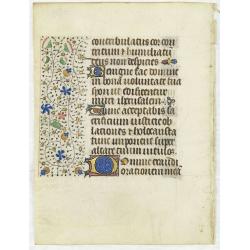 contribulatus cor con
tritum & humiliatu
deus non despicies
Benigne fac domine
in bona voluntate tua
syon ut edificentur
muri iherusalem
Tunc acceptabis sa
crificium iusticie ob
lationes & holocausta
tunc imponent super
altare tuum vitulos
Domine exaudi
orationem mea